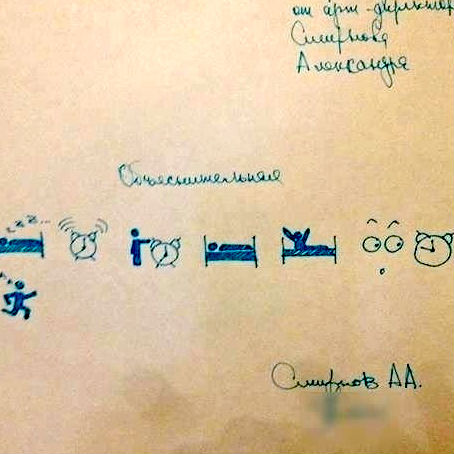 от арт-директор
Смирнова
Александра
Объяснительная
zzZ...
Смирнов АА.